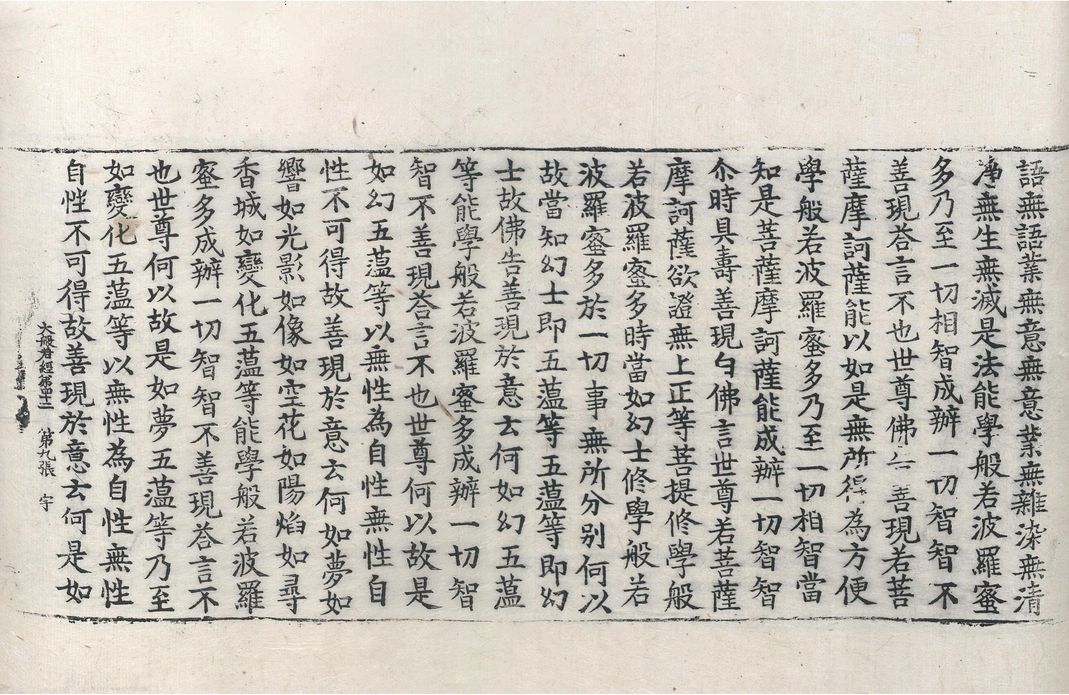 語無語業無意無意業無雜染無清
淨無生無滅是法能學般若波羅蜜
多乃至一切相智成辦一切智智不
善現荅言不也世尊佛告善現若菩
薩摩訶薩能以如是無所得為方便
學般若波羅蜜多乃至一切相智當
知是菩薩摩訶薩能成辦一切智智
尒時具壽善現白佛言世尊若菩薩
摩訶薩欲證無上正等菩提修學般
若波羅蜜多時當如幻士修學般若
波羅蜜多於一切事無所分别何以
故當知幻士即五蕰等五蕰等即幻
士故佛告善現於意云何如幻五蕰
等能學般若波羅蜜多成辦一切智
智不善現荅言不也世尊何以故是
如幻五蕰等以無性為自性無性自
性不可得故善現於意云何如夢如
響如光影如像如空花如陽焰如尋
香城如變化五蕰等能學般若波羅
蜜多成辦一切智智不善現荅言不
也世尊何以故是如夢五蕰等乃至
如變化五蕰等以無性為自性無性
自性不可得故善現於意云何是如
大般若經第四十二 第九張 宇